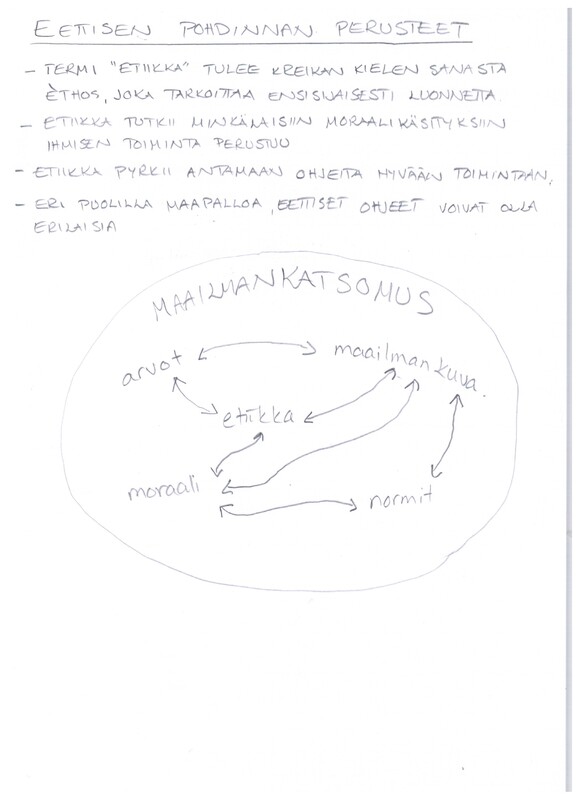 EETTISEN POHDINNAN PERUSTEET
- TERMI "ETIIKKA" TULEE KREIKAN KIELEN SANASTA
ÈTHOS, JOKA TARKOITTAA ENSISIJAISESTI LUONNETTA.
- ETIIKKA TUTKII MINKÄLAISIIN MORAALIKÄSITYKSIIN
IHMISEN TOIMINTA PERUSTUU
- ETIIKKA PYRKII ANTAMAAN OHJEITA HYVÄÄN TOIMINTAAN.
- ERI PUOLILLA MAAPALLOA, EETTISET OHJEET VOIVAT OLLA
ERILAISIA
MAAILMANKATSOMUS
arvot
maailmankuva.
etiikka
moraali
normit